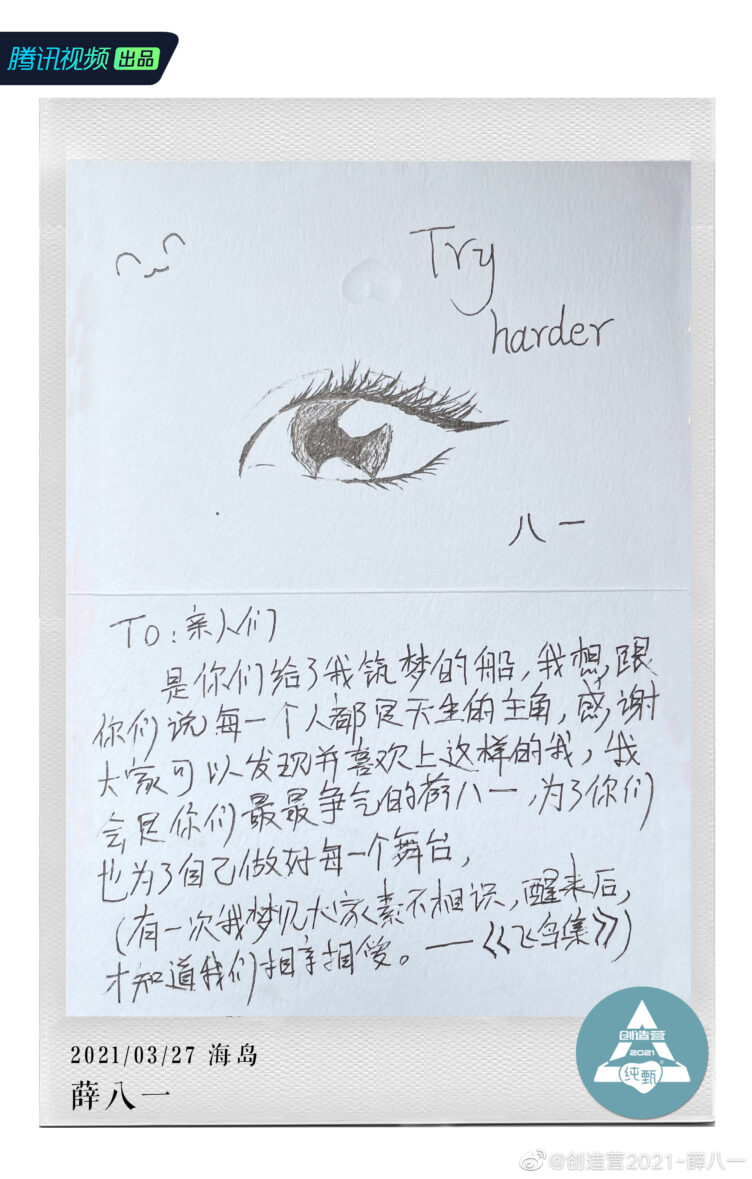 腾讯视频 出品
Try
harder
八一
TO:亲人们
是你们给了我筑梦的船,我想跟
你们说每一个人都是天生的主角,感谢
大家可以发现并喜欢上这样的我,我
会是你们最最争气的薛八一,为了你们
也为了自己做好每一个舞台,
(有一次我梦见大家素不相识,醒来后,
才知道我们相亲相爱。——《飞鸟集》)
2021/03/27 海岛
薛八一
创造营
2021
纯甄
@创造营2021-薛八一